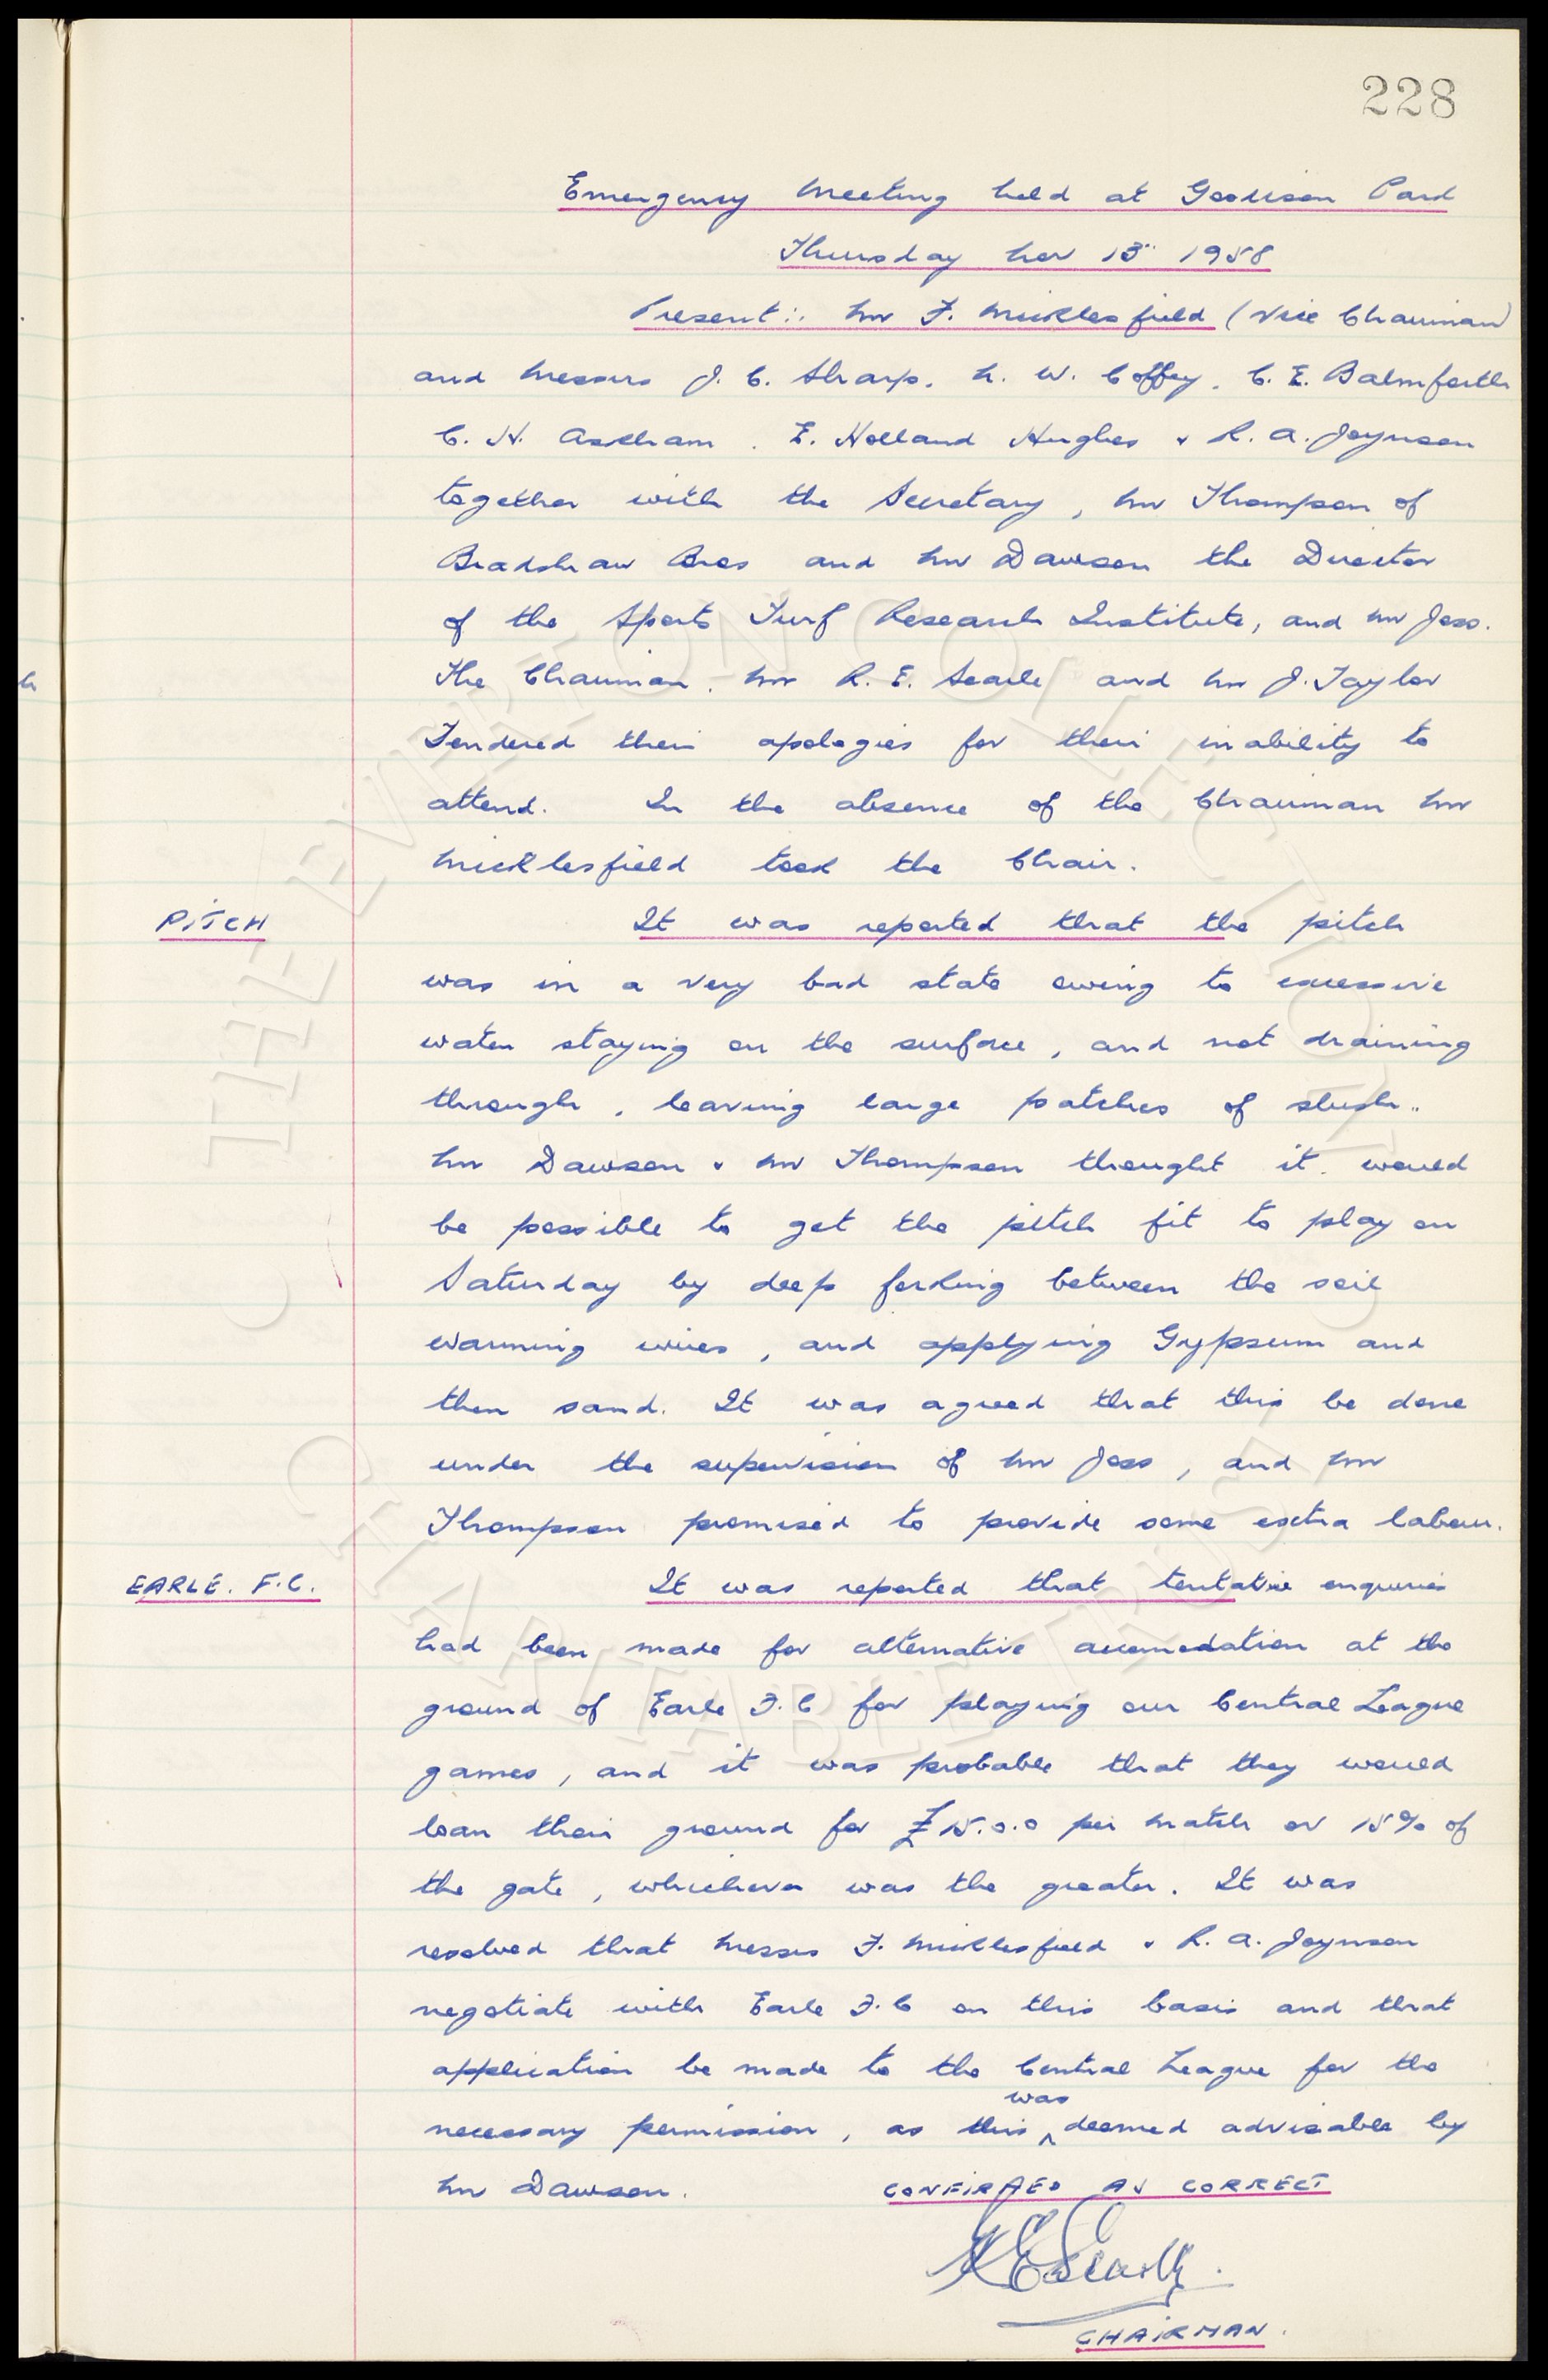 228
Emergency Meeting held at Goodison Park
Thursday Nov 13" 1958
Present:. Mr F. Micklesfield (Vice Chairman)
and Messrs J. C. Sharp. N. W. Coffey. C. E. Balmforth
C. H. Askham. E. Holland Hughes & R. A. Joynson
together with the Secretary, Mr Thompson of
Bradshaw Bros and Mr Dawson the Director
of the Sports Turf Research Institute, and Mr Jess.
The Chairman. Mr R. E. Searle and Mr J. Taylor
Tendered their apologies for their inability to
attend. In the absence of the Chairman Mr
Micklesfield took the Chair.
PITCH
It was reported that the pitch
was in a very bad state owing to excessive
water staying on the surface, and not draining
through, leaving large patches of slush..
Mr Dawson & Mr Thompson thought it would
be possible to get the pitch fit to play on
Saturday by deep forking between the soil
warming wires, and applying Gypsum and
then sand. It was agreed that this be done
under the supervision of Mr Jess, and Mr
Thompson promised to provide some extra labour.
EARLE. F.C.
It was reported that tentative enquiries
had been made for alternative accomodation at the
ground of Earle F.C for playing our Central League
games, and it was probable that they would
loan their ground for £15.0.0 per match or 15% of
the gate, whichever was the greater. It was
resolved that Messrs F. Micklesfield & R. A. Joynson
negotiate with Earle F.C on this basis and that
application be made to the Central League for the
necessary permission, as this was deemed advisable by
Mr Dawson.
CONFIRMED AS CORRECT
R E Searle.
CHAIRMAN.
THE EVERTON COLLECTION
CHARITABLE TRUST